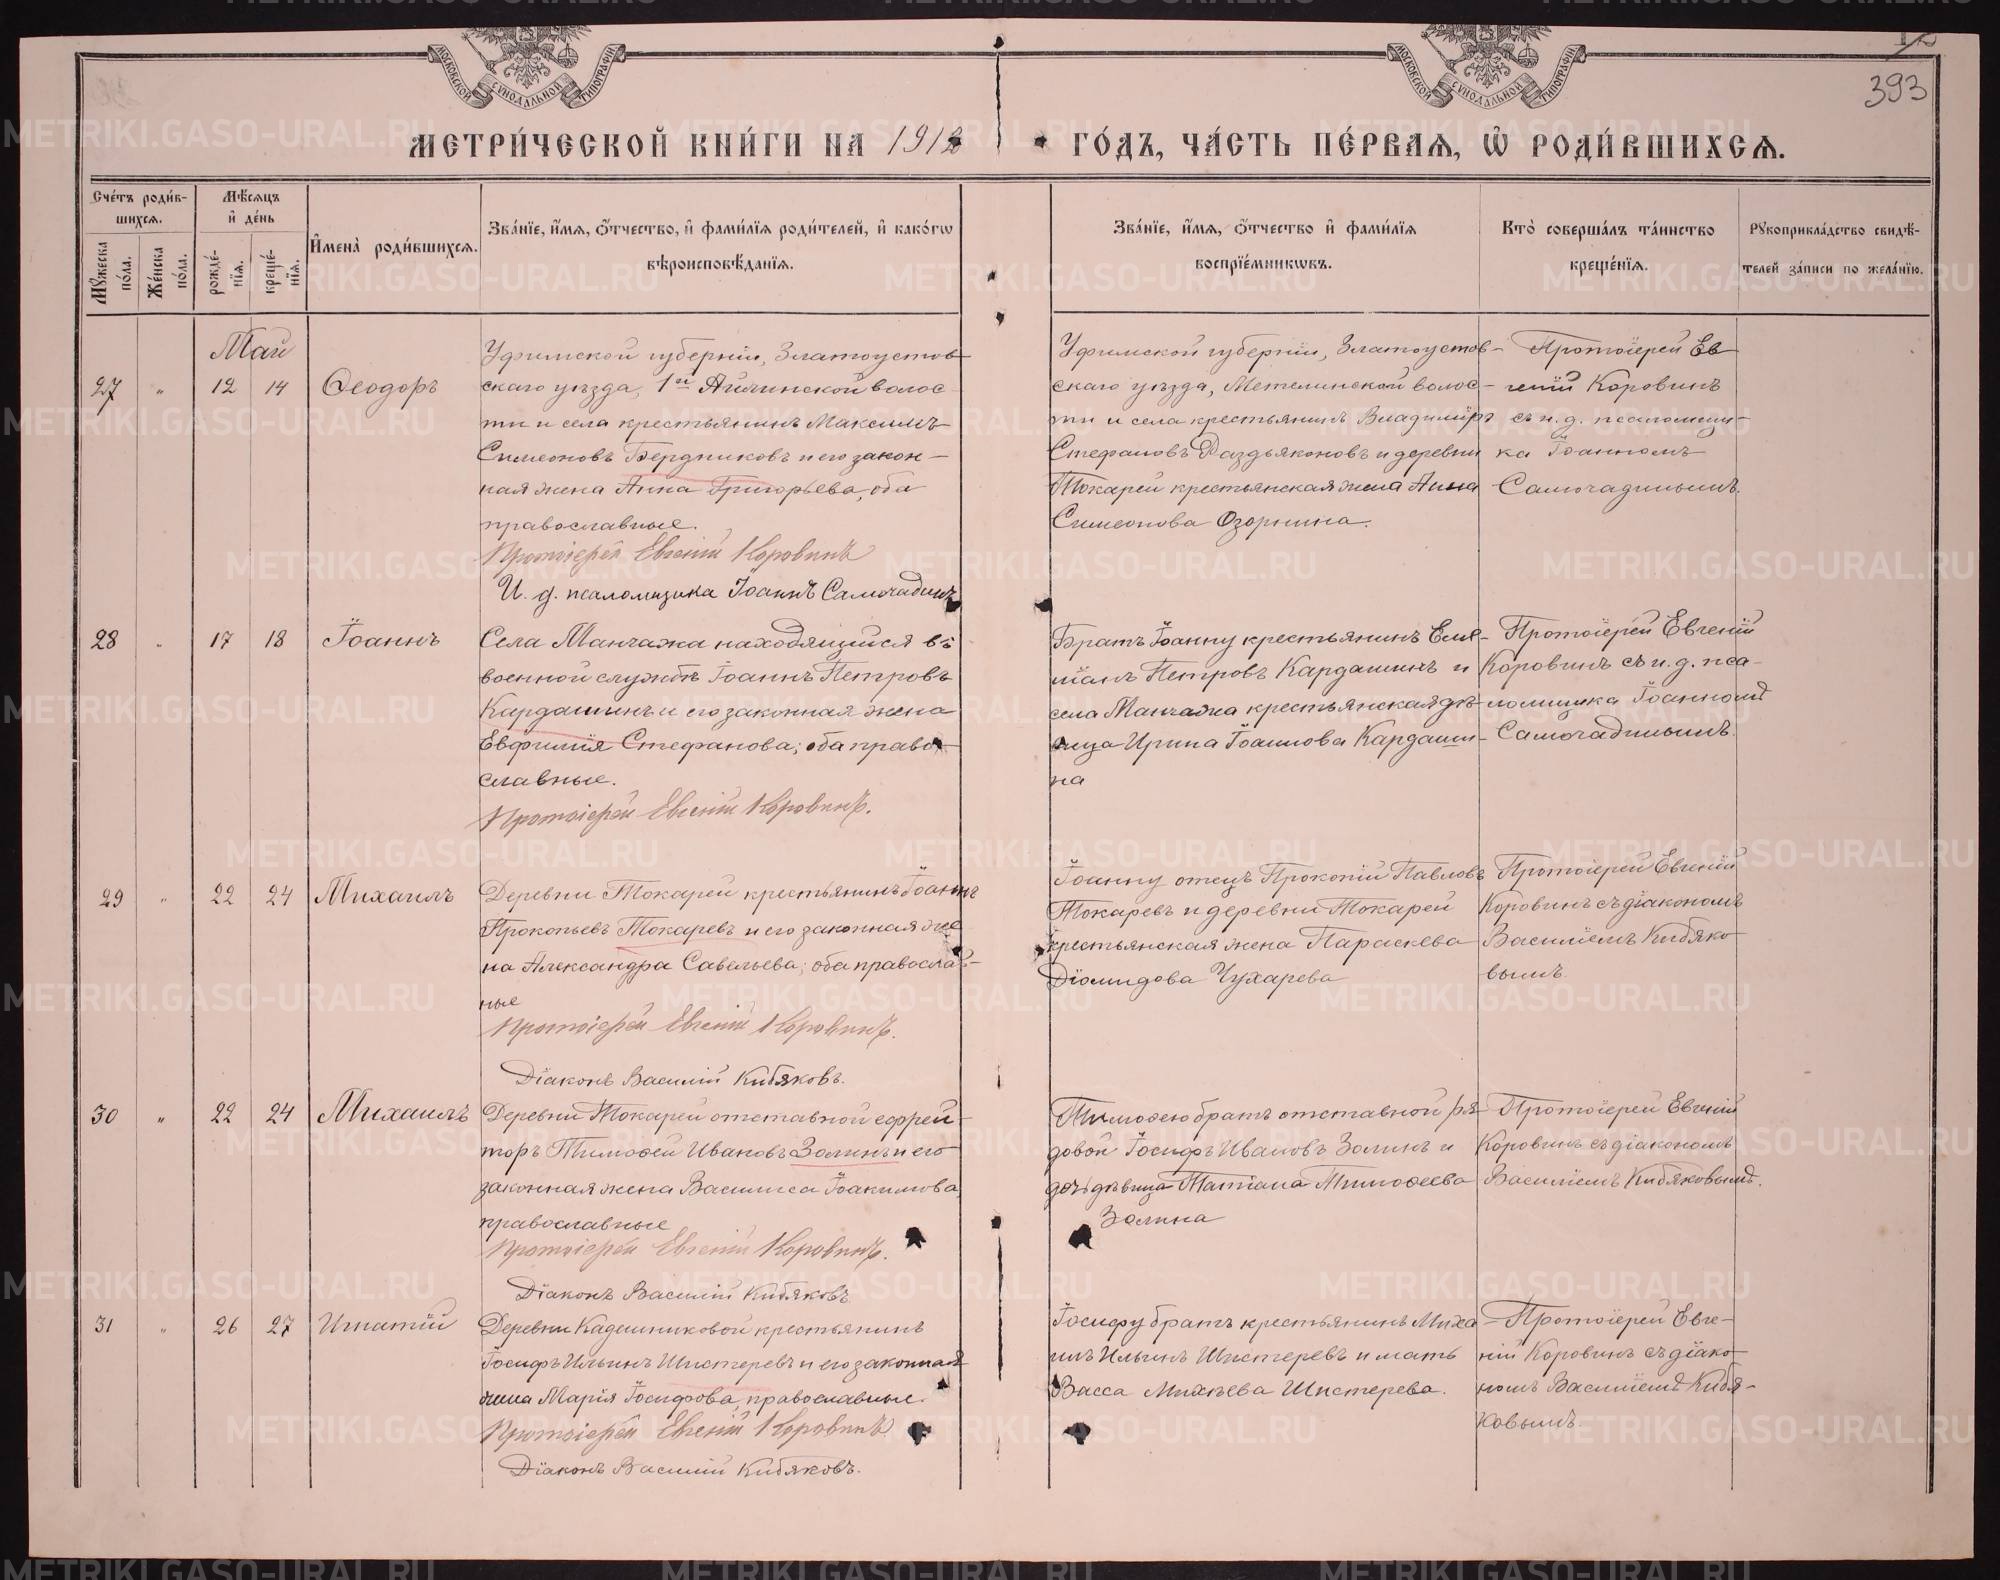 393
МЕТРИ́ЧЕСКОЙ КНИ́ГИ НА 1912
ГО́ДЪ, ЧА́СТЬ ПЕ́РВАѦ, Ѽ РОДИ́ВШИХСѦ.
Сче́тъ роди́в-
шихсѧ.
Мѣ́сѧцъ
и҆ де́нь
Мꙋжеска по́ла.
Же́нска по́ла.
рожде́-
нїѧ.
креще́-
нїѧ.
И҆мена̀ роди́вшихсѧ.
Зва́нїе, и҆́мѧ, ѻ҆́тчество, и҆ фами́лїѧ роди́телей, и҆ како́гѡ
вѣроисповѣ́данїѧ.
Зва́нїе, и҆́мѧ, ѻ҆́тчество и҆ фами́лїѧ
воспрїе́мникѡвъ.
Кто̀ соверша́лъ та́инство
креще́нїѧ.
Рꙋкоприкла́дство свидѣ́-
телей за́писи по жела́нїю.
Май
27 " 12 14 Ѳеодоръ
Уфимской губерніи, Златоустов-
скаго уѣзда, 1й Айлинской волос-
ти и села крестьянинъ Максимъ
Симеоновъ Бердниковъ и его закон-
ная жена Анна Григорьева, оба
православные.
Протоіерей Евгеній Коровинъ
И. д. псаломщика Іоаннъ Самочадинъ
Уфимской губерніи, Златоустов-
скаго уѣзда, Метелинской волос-
ти и села крестьянинъ Владиміръ
Стефановъ Раздьяконовъ и деревни
Токарей крестьянская жена Анна
Симеонова Озорнина.
Протоіерей Ев
геній Коровинъ
съ и. д. псаломщи-
ка Іоанномъ
Самочадинымъ.
28 " 17 18 Іоаннъ
Села Манчажа находящійся въ
военной службѣ Іоаннъ Петровъ
Кардашинъ и его законная жена
Евфимія Стефанова; оба право-
славные.
Протоіерей Евгеній Коровинъ.
Братъ Іоанну крестьянинъ Емe-
ліанъ Петровъ Кардашинъ и
села Манчажа крестьянская дѣ-
вица Ирина Іоаннова Кардаши-
на
Протоіерей Евгеній
Коровинъ съ и. д. пса-
ломщика Іоанномъ
Самочадинымъ.
29 " 22 24 Михаилъ
Деревни Токарей крестьянинъ Іоаннъ
Прокопьевъ Токаревъ и его законная же
на Александра Савельева; оба православ-
ные
Протоіерей Евгеній Коровинъ.
Діаконъ Василій Кибяковъ.
Іоанну отецъ Прокопій Павловъ
Токаревъ и деревни Токарей
крестьянская жена Параскева
Діомидова Чухарева
Протоіерей Евгеній
Коровинъ съ діакономъ
Василіемъ Кибяко
вымъ.
30 " 22 24 Михаилъ
Деревни Токарей отставной ефрей-
торъ Тимоѳей Ивановъ Золинъ и его
законная жена Василиса Іоакимова
православные
Протоіерей Евгеній Коровинъ.
Діаконъ Василій Кибяковъ
Тимоѳею братъ отставной ря-
довой Іосифъ Ивановъ Золинъ и
дочь дѣвица Татіана Тимоѳеева
Золина
Протоіерей Евгеній
Коровинъ съ діакономъ
Василіемъ Кибяковымъ.
31 " 26 27 Игнатій
Деревни Кадешниковой крестьянинъ
Іосифъ Ильинъ Шистеревъ и его законная
жена Марія Іосифова, православные.
Протоіерей Евгеній Коровинъ
Діаконъ Василій Кибяковъ.
Іосифу братъ крестьянинъ Миха
илъ Ильинъ Шистеревъ и мать
Васса Михѣева Шистерева.
Протоіерей Евге-
ній Коровинъ съ діако-
номъ Василіемъ Кибя-
ковымъ.
METRIKI.GASO-URAL.RU